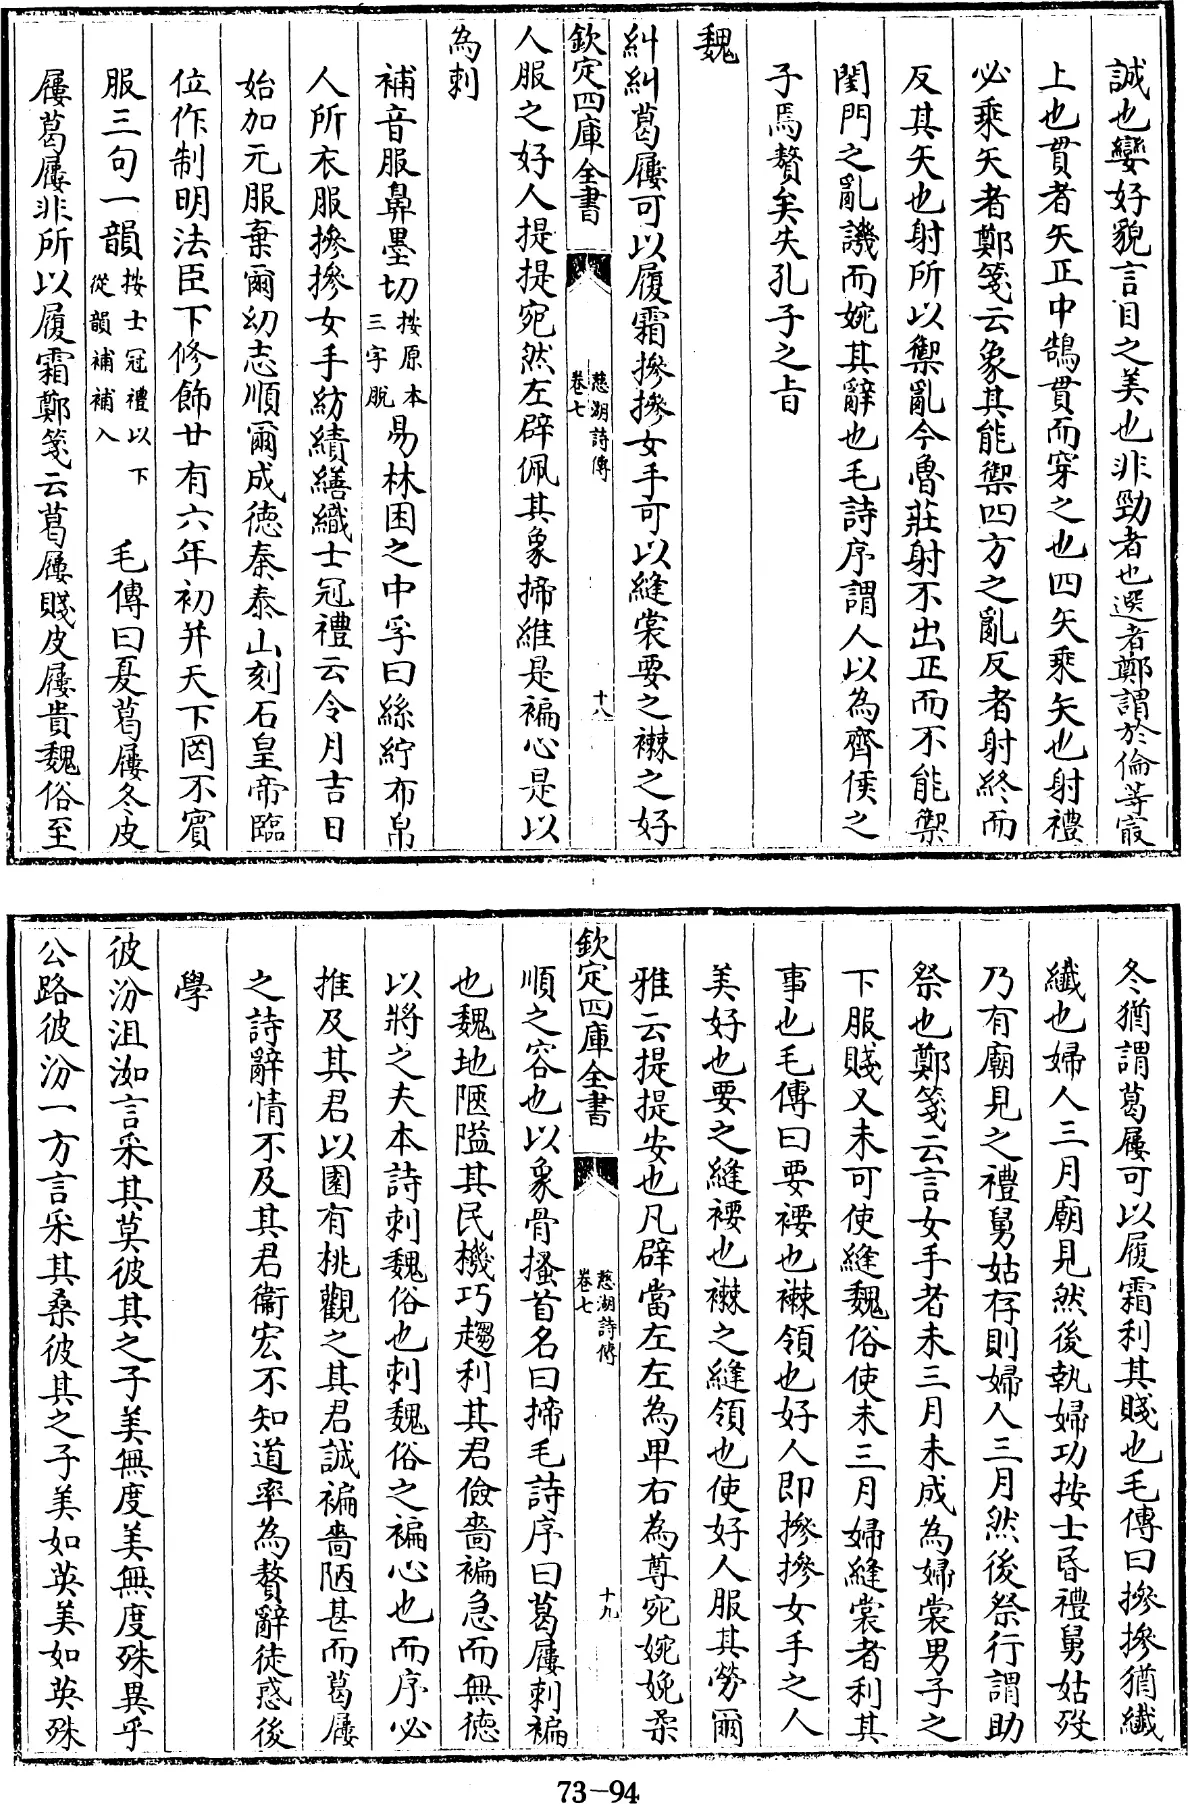 誠也孌好貌言目之美也非勁者也選者鄭謂於倫等㝡
上也貫者矢正中鵠貫而穿之也四矢乘矢也射禮
必乘矢者鄭箋云象其能禦四方之亂反者射終而
反其矢也射所以禦亂今魯莊射不出正而不能禦
閨門之亂譏而婉其辭也毛詩序謂人以為齊侯之
子焉贅矣失孔子之旨
魏
糾糾葛屨可以履霜摻摻女手可以縫裳要之襋之好
欽定四庫全書
慈湖詩傳
卷七
十八
人服之好人提提宛然左辟佩其象揥維是褊心是以
為刺
補音服鼻墨切按原本三字脫易林困之中孚曰絲紵布帛
人所衣服摻摻女手紡績繕織士冠禮云令月吉日
始加元服棄爾幼志順爾成徳秦泰山刻石皇帝臨
位作制明法臣下修飾廿有六年初并天下罔不賓
服三句一韻按士冠禮以下從韻補補入毛傳曰夏葛屨冬皮
屨葛屨非所以履霜鄭箋云葛屨賤皮屨貴魏俗至
冬猶謂葛屨可以履霜利其賤也毛傳曰摻摻猶纖
纖也婦人三月廟見然後執婦功按士昏禮舅姑殁
乃有廟見之禮舅姑存則婦人三月然後祭行謂助
祭也鄭箋云言女手者未三月未成為婦裳男子之
下服賤又未可使縫魏俗使未三月婦縫裳者利其
事也毛傳曰要䙅也襋領也好人即摻摻女手之人
美好也要之縫䙅也襋之縫領也使好人服其勞爾
雅云提提安也凡辟當左左為卑右為尊宛婉娩柔
欽定四庫全書
慈湖詩傳
卷七
十九
順之容也以象骨搔首名曰揥毛詩序曰葛屨刺褊
也魏地陿隘其民機巧趨利其君儉嗇褊急而無徳
以將之夫本詩刺魏俗也刺魏俗之褊心也而序必
推及其君以園有桃觀之其君誠褊嗇陋甚而葛屨
之詩辭情不及其君衞宏不知道率為贅辭徒惑後
學
彼汾沮洳言采其莫彼其之子美無度美無度殊異乎
公路彼汾一方言采其桑彼其之子美如英美如英殊
73-94